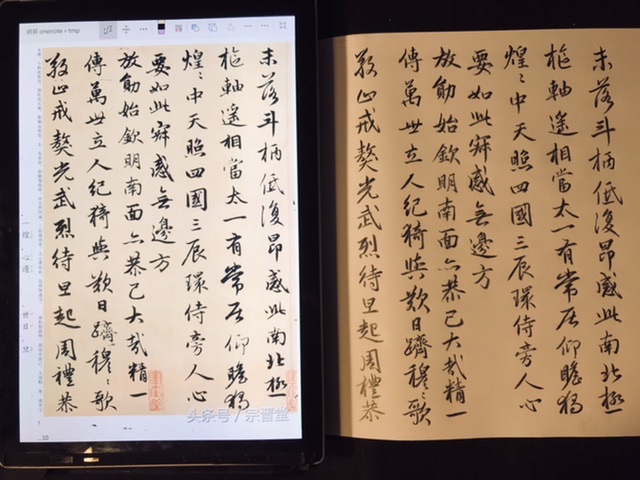 onenote » tmp
未落斗柄低復昂感此南北極
樞軸遙相當太一有常居仰瞻獨
煌〻中天照四國三辰環侍旁人心
要如此寂感無邊方
放勛始欽明南面亦恭己大哉精一
傳萬世立人紀猗與歎日躋穆〻歌
敬止戒獒光武烈待旦起周禮恭
头条号/宗晋堂
未落斗柄低復昂感此南北極
樞軸遙相當太一有常居仰瞻獨
煌〻中天照四國三辰環侍旁人心
要如此寂感無邊方
放勛始欽明南面亦恭己大哉精一
傳萬世立人紀猗與歎日躋穆〻歌
敬止戒獒光武烈待旦起周禮恭